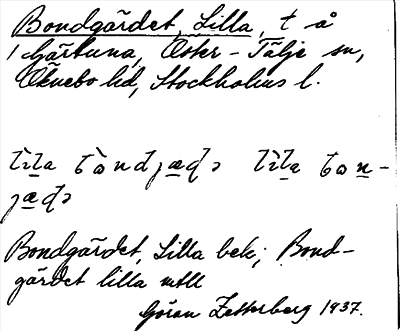 Bondgärdet, Lilla, t å
1 Gärtuna, Öster-Tälje sn,
Öknebo hd, Stockholms l.
Bondgärdet, Lilla bek; Bond-
gärdet lilla mtll
Göran Zetterberg 1937.